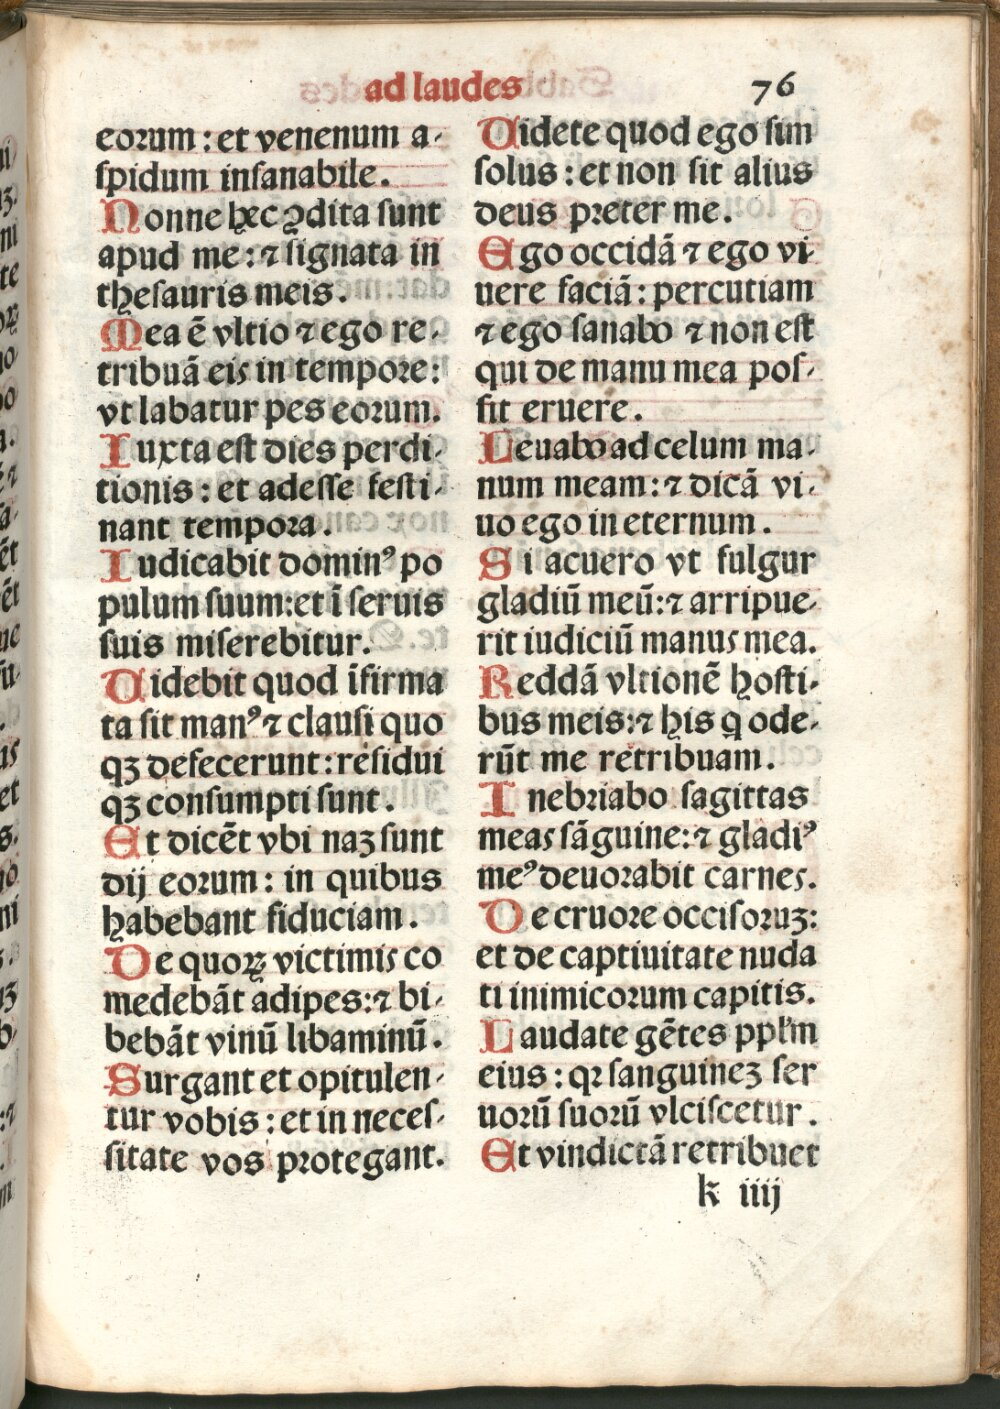 ad laudes
76
eorum : et venenum a-
spidum insanabile.
Nonne hęc ꝯdita sunt
apud me : ⁊ signata in
thesauris meis.
Mea ē vltio ⁊ ego re-
tribuā eis in tempore:
vt labatur pes eorum.
Iuxta est dies perdi-
tionis : et adesse festi-
nant tempora.
Iudicabit dominꝰ po
pulum suum: et ī seruis
suis miserebitur.
Uidebit quod īfirma
ta sit manꝰ ⁊ clausi quo
qꝫ defecerunt : residui
qꝫ consumpti sunt.
Et dicēt vbi naꝫ sunt
dij eorum : in quibus
habebant fiduciam.
De quoꝝ victimis co
medebāt adipes: ⁊ bi-
bebāt vinū libaminū.
Surgant et opitulen-
tur vobis : et in neces-
sitate vos protegant.
Uidete quod ego sim
solus : et non sit alius
deus preter me.
Ego occidā ⁊ ego vi-
uere faciā : percutiam
⁊ ego sanabo ⁊ non est
qui de manu mea pos-
sit eruere.
Leuabo ad celum ma-
num meam : ⁊ dicā vi-
uo ego in eternum.
Si acuero vt fulgur
gladiū meū: ⁊ arripue-
rit iudiciū manus mea.
Reddā vltionē hosti-
bus meis: ⁊ his q̄ ode-
rūt me retribuam.
Inebriabo sagittas
meas sāguine: ⁊ gladiꝰ
meꝰ deuorabit carnes.
De cruore occisoruꝫ:
et de captiuitate nuda
ti inimicorum capitis.
Laudate gētes pplm̄
eius : qꝛ sanguineꝫ ser
uorū suorū vlciscetur.
Et vindictā retribuet
k iiij